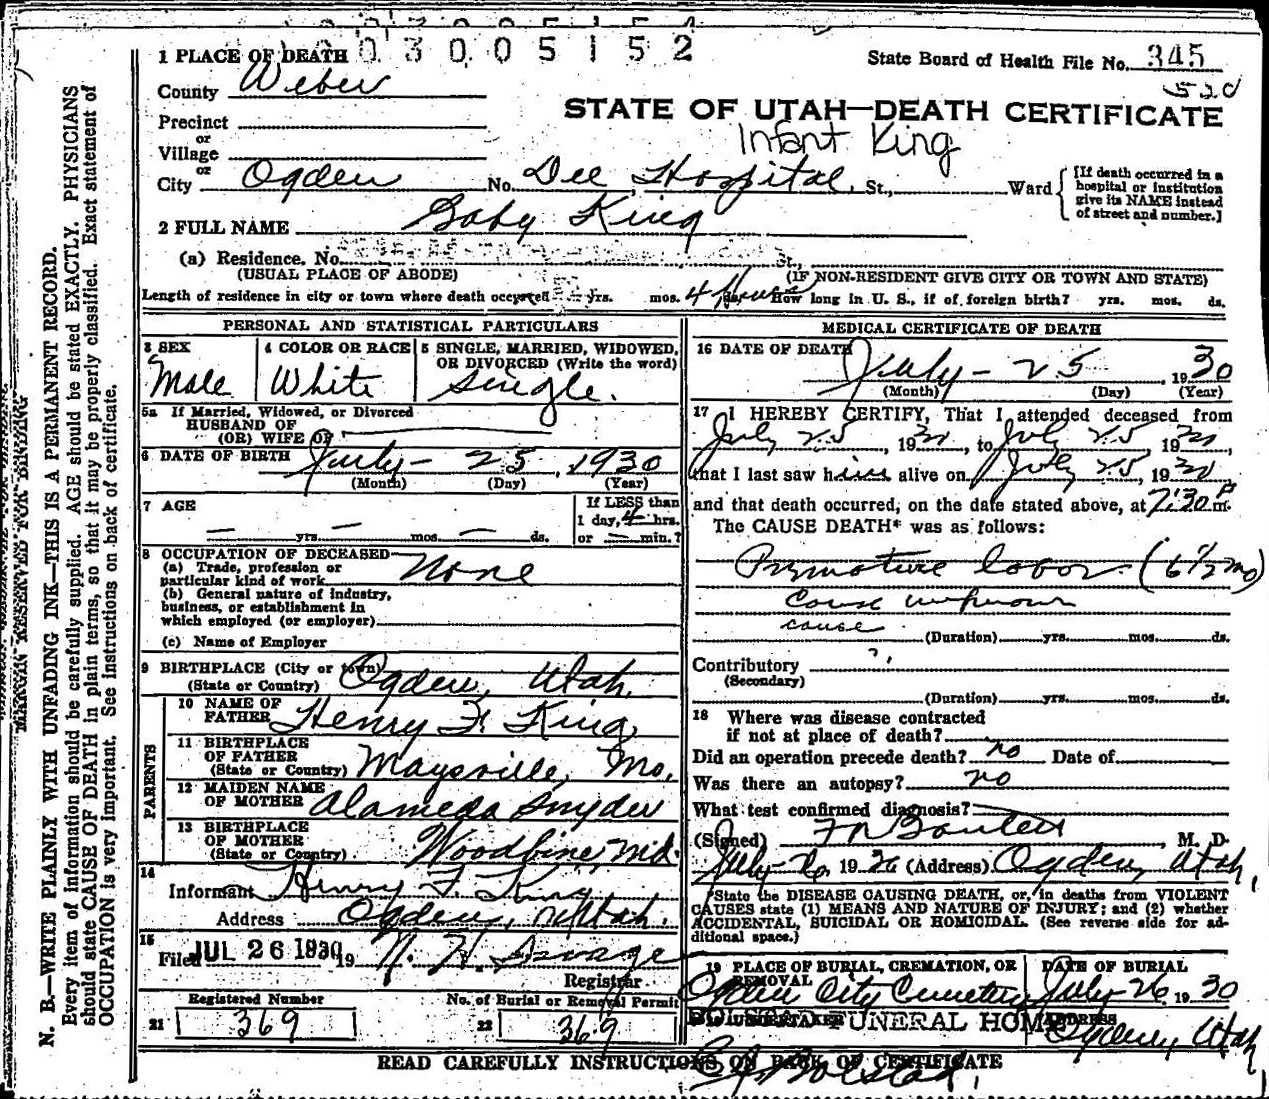 003005152
1 PLACE OF DEATH
State Board of Health File No. 345
County Weber
520
STATE OF UTAH—DEATH CERTIFICATE
Precinct
or
Infant King
Village
or
City Ogden No. Dee Hospital St., Ward
[If death occurred in a hospital or institution give its NAME instead of street and number.]
2 FULL NAME Baby King
(a) Residence. No. St.,
(USUAL PLACE OF ABODE) (IF NON-RESIDENT GIVE CITY OR TOWN AND STATE)
Length of residence in city or town where death occurred yrs. mos. 4 Hours How long in U. S., if of foreign birth? yrs. mos. ds.
PERSONAL AND STATISTICAL PARTICULARS
3 SEX 4 COLOR OR RACE 5 SINGLE, MARRIED, WIDOWED,
OR DIVORCED (Write the word)
Male White Single.
5a If Married, Widowed, or Divorced
HUSBAND OF
(OR) WIFE OF
6 DATE OF BIRTH July - 25, 1930
(Month) (Day) (Year)
7 AGE If LESS than
1 day, 4 hrs.
— yrs. — mos. — ds. or — min.?
8 OCCUPATION OF DECEASED
(a) Trade, profession or
particular kind of work None
(b) General nature of industry,
business, or establishment in
which employed (or employer)
(c) Name of Employer
9 BIRTHPLACE (City or town) Ogden, Utah.
(State or Country)
PARENTS
10 NAME OF
FATHER Henry F. King
11 BIRTHPLACE
OF FATHER
(State or Country) Maysville, Mo.
12 MAIDEN NAME
OF MOTHER Alameda Snyder
13 BIRTHPLACE
OF MOTHER
(State or Country) Woodbine, Md.
14
Informant Henry F. King
Address Ogden, Utah.
15
Filed JUL 26 1930 19 N. H. Savage
Registrar
Registered Number No. of Burial or Removal Permit
21 369 22 369
MEDICAL CERTIFICATE OF DEATH
16 DATE OF DEATH July - 25, 1930
(Month) (Day) (Year)
17 I HEREBY CERTIFY, That I attended deceased from
July 25, 1930, to July 25 1930,
that I last saw him alive on July 25, 1930
and that death occurred, on the date stated above, at 7:30 P m.
The CAUSE DEATH* was as follows:
Premature labor (6 1/2 mo)
Cause unknown
cause
(Duration) yrs. mos. ds.
Contributory ?
(Secondary)
(Duration) yrs. mos. ds.
18 Where was disease contracted
if not at place of death?
Did an operation precede death? no Date of
Was there an autopsy? no
What test confirmed diagnosis?
(Signed) M. D.
July 26 1926 (Address) Ogden, Utah,
*State the DISEASE CAUSING DEATH, or, in deaths from VIOLENT
CAUSES state (1) MEANS AND NATURE OF INJURY; and (2) whether
ACCIDENTAL, SUICIDAL OR HOMICIDAL. (See reverse side for ad-
ditional space.)
19 PLACE OF BURIAL, CREMATION, OR REMOVAL DATE OF BURIAL
Ogden City Cemetery July 26 1930
UNDERTAKER FUNERAL HOME ADDRESS
Ogden, Utah
READ CAREFULLY INSTRUCTIONS ON BACK OF CERTIFICATE
MARGIN RESERVED FOR BINDING
N. B.—WRITE PLAINLY WITH UNFADING INK—THIS IS A PERMANENT RECORD.
Every item of information should be carefully supplied. AGE should be stated EXACTLY. PHYSICIANS
should state CAUSE OF DEATH in plain terms, so that it may be properly classified. Exact statement of
OCCUPATION is very important. See instructions on back of certificate.